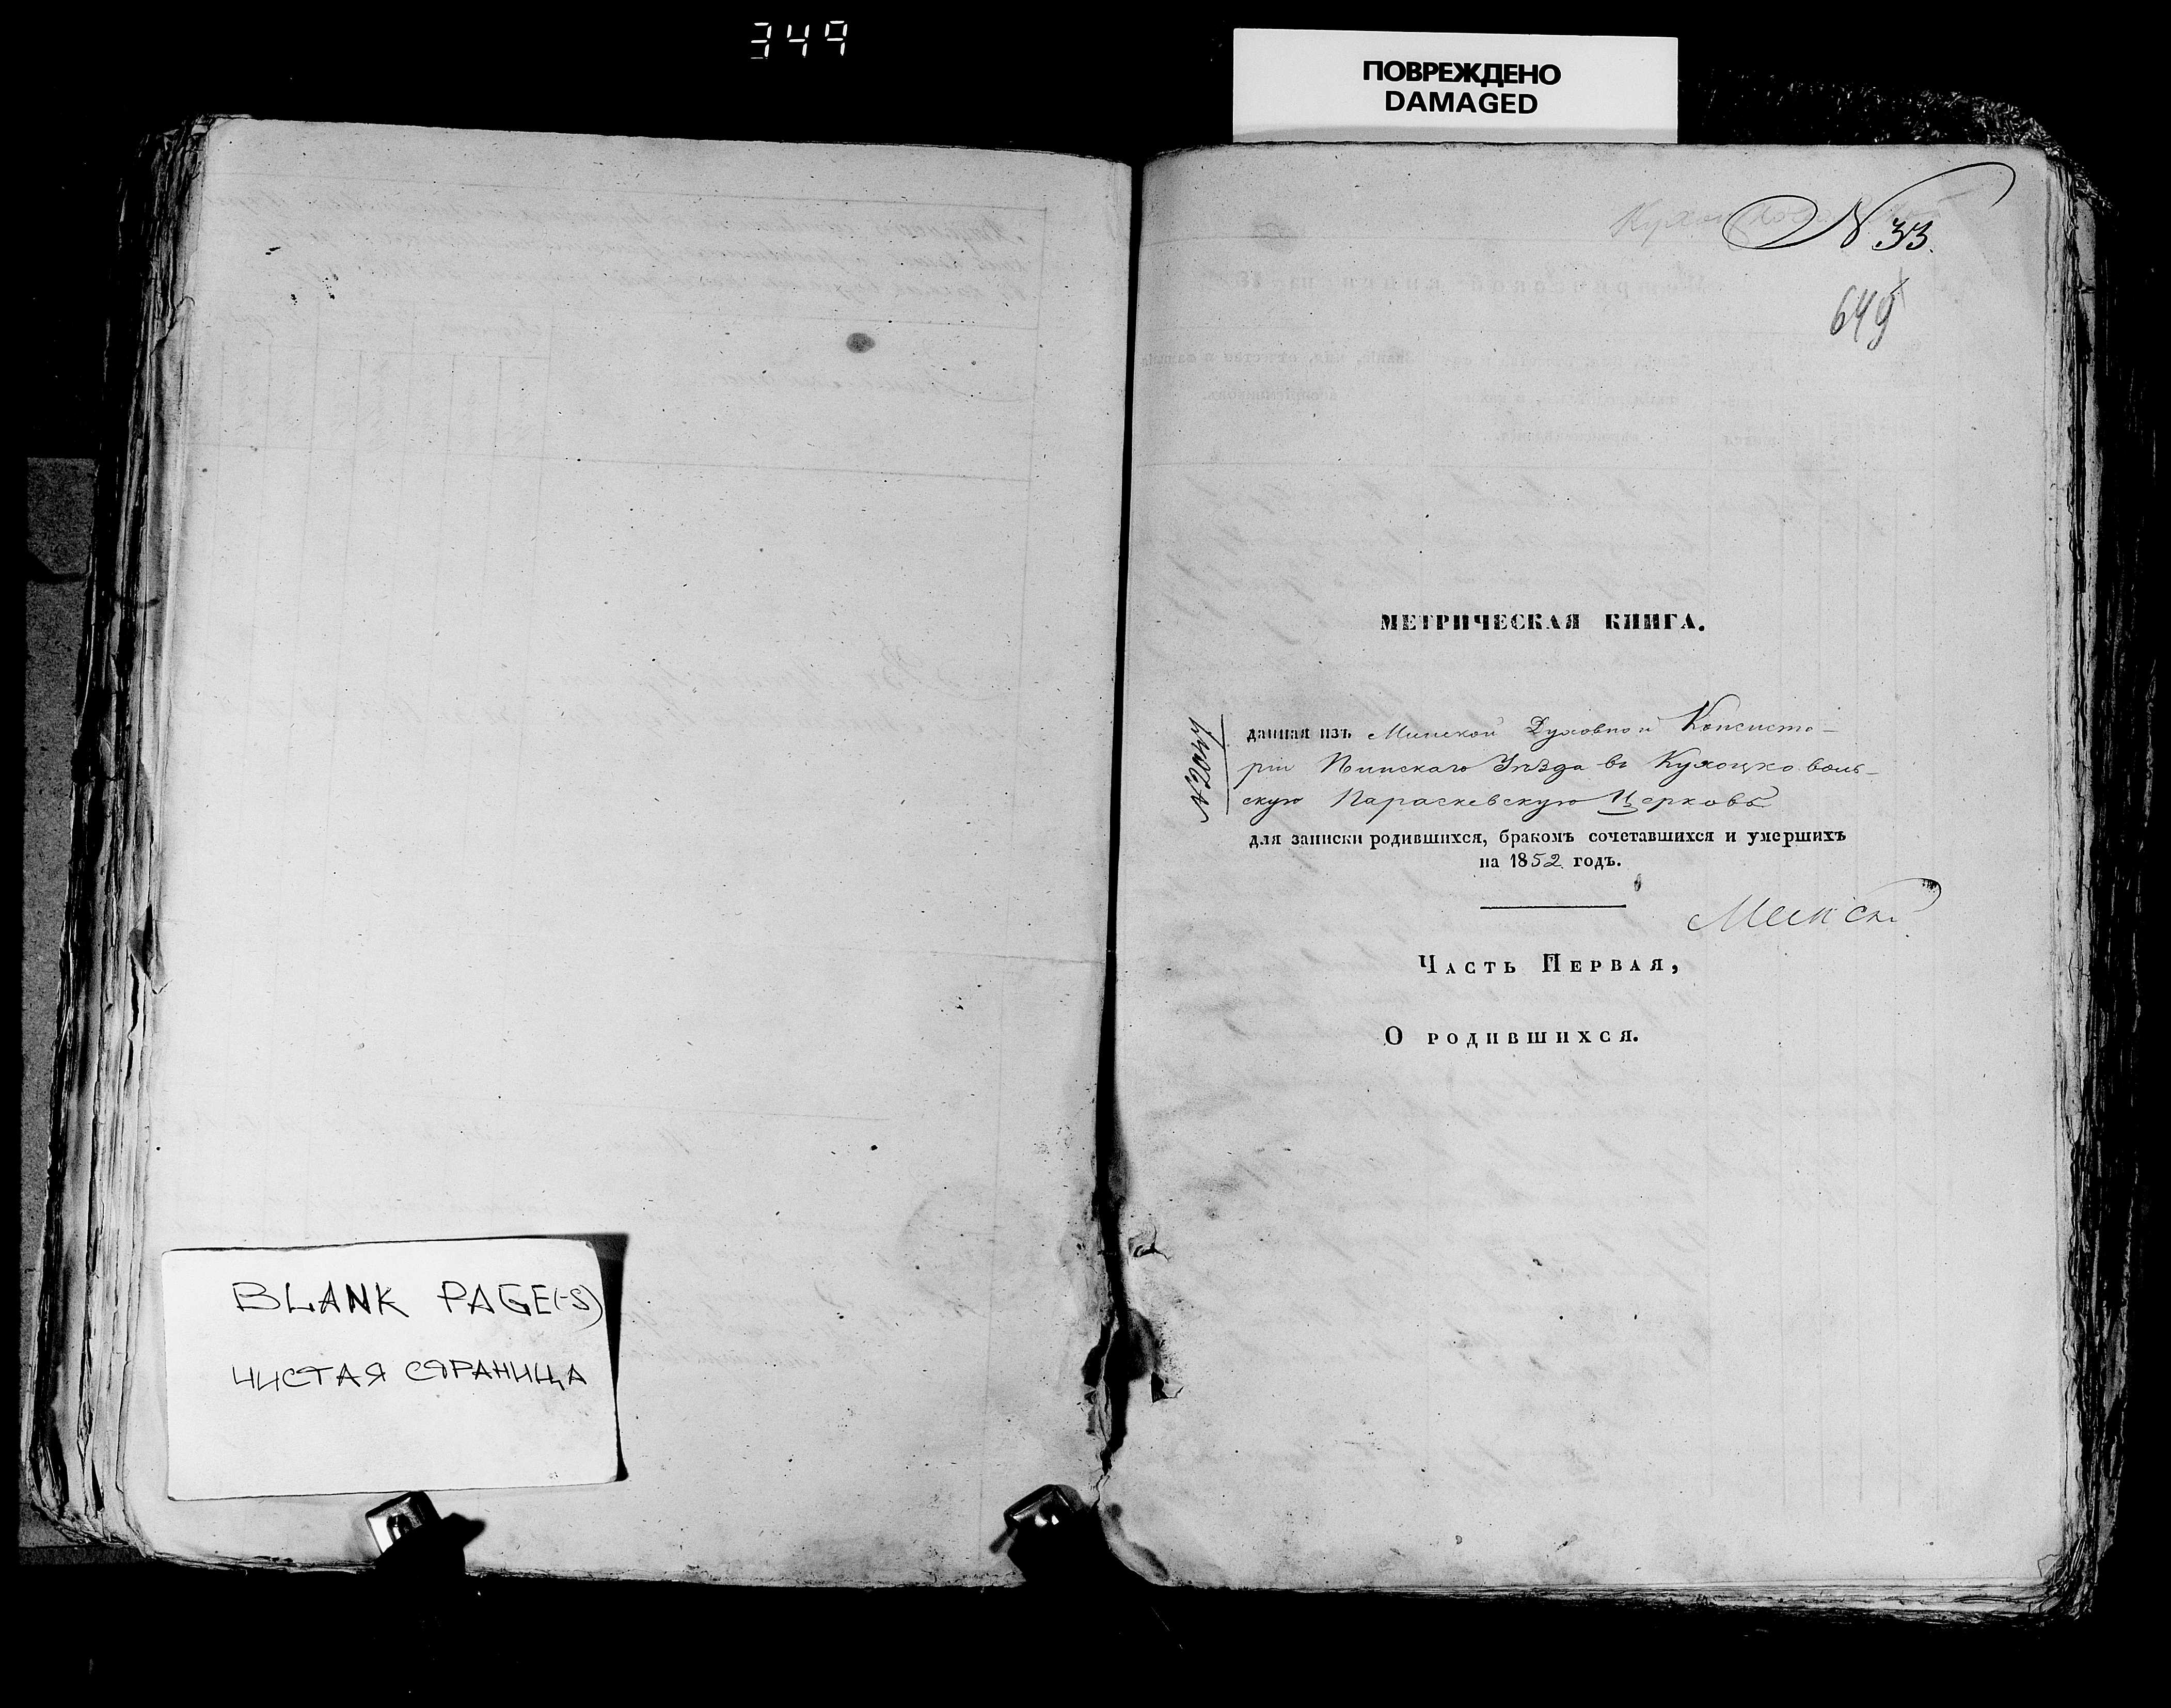 349
ПОВРЕЖДЕНО
DAMAGED
N 33.
649
МЕТРИЧЕСКАЯ КНИГА.
данная изъ Минской Духовной Консисто-
ріи Пинскаго Уѣзда въ Кухоцковоль-
скую Параскевскую Церковь
для записки родившихся, бракомъ сочетавшихся и умершихъ
на 1852 годъ.
Часть Первая,
О родившихся.
BLANK PAGE(-S)
ЧИСТАЯ СТРАНИЦА